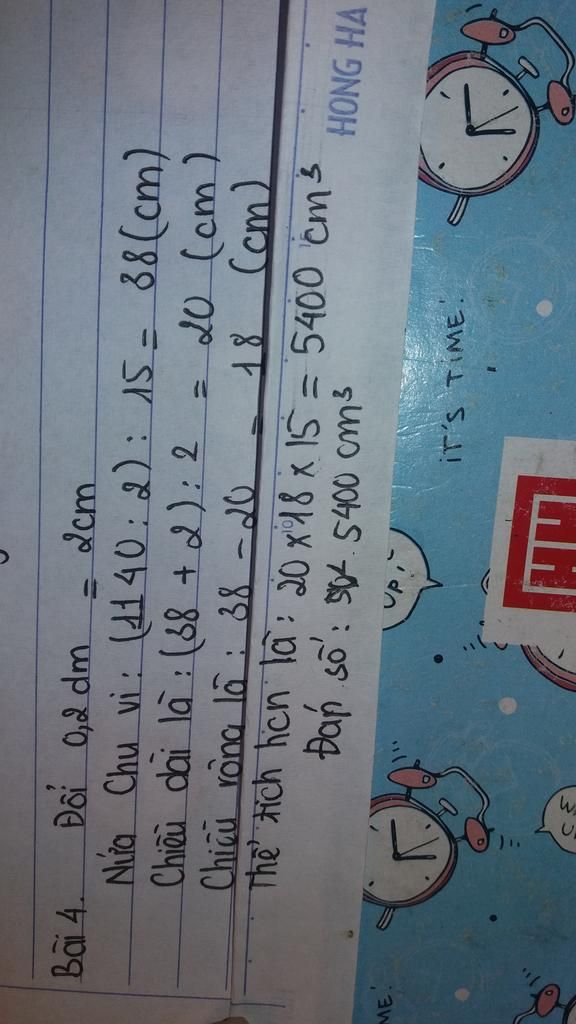 Bài 4. Đổi 0,2 dm = 2cm
Nửa Chu vi : (1140 : 2) : 15 = 38 (cm)
Chiều dài là : (38 + 2) : 2 = 20 (cm)
Chiều rộng là : 38 - 20 = 18 (cm)
Thể tích hcn là : 20 x 18 x 15 = 5400 cm³
Đáp số : 5400 cm³
HONG HA
IT'S TIME!
UP!
ME!